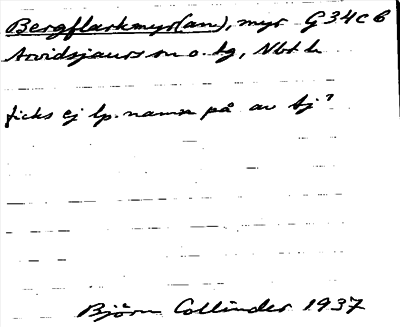 Bergflarkmyr(an), myr G34c6
Arvidsjaurs sn o. tg, Nbt l.
ficks ej lp. namn på av
Björn Collinder 1937